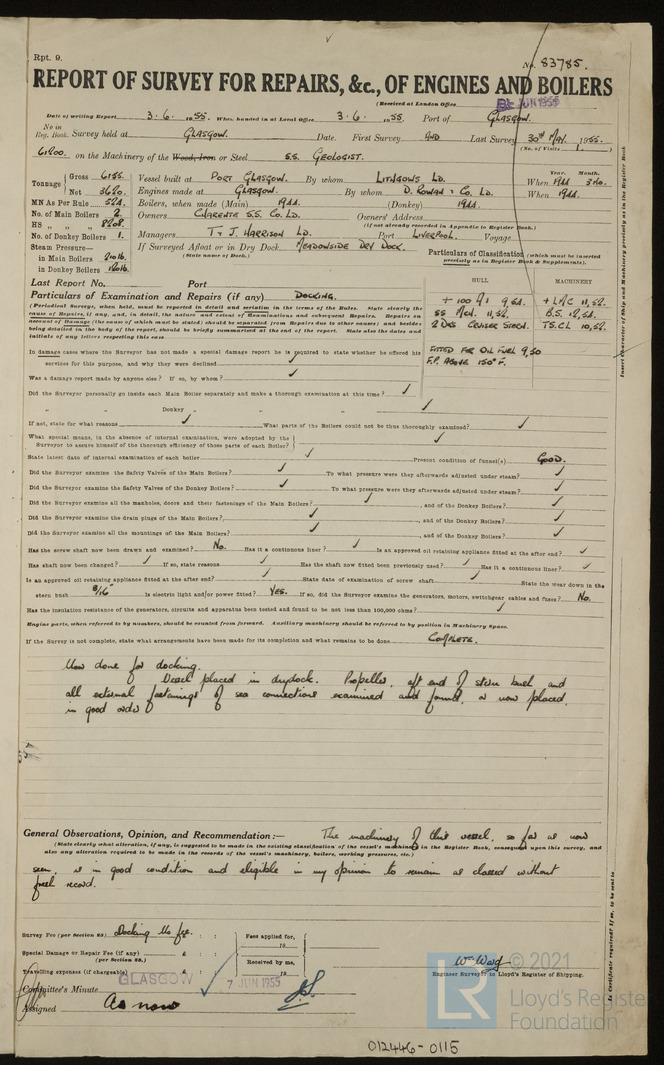 Rpt. 9.
No. 83785.
REPORT OF SURVEY FOR REPAIRS, &c., OF ENGINES AND BOILERS
(Received at London Office JUN 1955
Date of writing Report 3.6. 1955. When handed in at Local Office 3.6. 1955. Port of Glasgow.
No in Reg. Book. Survey held at Glasgow. Date. First Survey AND Last Survey 30th May. 1955.
(No. of Visits 1.)
61200. on the Machinery of the Wood, Iron or Steel S.S. GEOLOGIST.
Tonnage Gross 6155. Vessel built at Port Glasgow. By whom Lithgows Ld. When 1944 3mo.
Year. Month.
Net 3620. Engines made at Glasgow. By whom D. Rowan & Co. Ld. When 1944.
MN As Per Rule 524. Boilers, when made (Main) 1944. (Donkey) 1944.
No. of Main Boilers 2. Owners Charente S.S. Co. Ld. Owners' Address
HS " " 8208. (if not already recorded in Appendix to Register Book.)
No. of Donkey Boilers 1. Managers T. & J. Harrison Ld. Port Liverpool. Voyage
Steam Pressure— If Surveyed Afloat or in Dry Dock. Meadowside Dry Dock.
in Main Boilers
(State name of Dock.)
in Donkey Boilers
Particulars of Classification (which must be inserted precisely as in Register Book & Supplements).
Last Report No. Port
HULL MACHINERY
Particulars of Examination and Repairs (if any) Docking.
(Periodical Surveys, when held, must be reported in detail and seriatim in the terms of the Rules. State clearly the
cause of Repairs, if any, and, in detail, the nature and extent of Examinations and subsequent Repairs. Repairs on
account of Damage (the cause of which must be stated) should be separated from Repairs due to other causes; and besides
being detailed in the body of the report, should be briefly summarised at the end of the report. State also the dates and
initials of any letters respecting this case
+ 100 A1 9,54. + LMC 11,52.
B.S. 12,54.
2 Dks Cruiser Stern. TS.CL 10,52.
FITTED FOR OIL FUEL 9,50
F.P. ABOVE 150° F.
In damage cases where the Surveyor has not made a special damage report he is required to state whether he offered his
services for this purpose, and why they were declined ✓
Was a damage report made by anyone else? If so, by whom? ✓
Did the Surveyor personally go inside each Main Boiler separately and make a thorough examination at this time? ✓
" " Donkey " " " ✓
If not, state for what reasons ✓ What parts of the Boilers could not be thus thoroughly examined? ✓
What special means, in the absence of internal examination, were adopted by the
Surveyor to assure himself of the thorough efficiency of those parts of each Boiler? ✓
State latest date of internal examination of each boiler ✓ Present condition of funnel(s) Good.
Did the Surveyor examine the Safety Valves of the Main Boilers? ✓ To what pressure were they afterwards adjusted under steam? ✓
Did the Surveyor examine the Safety Valves of the Donkey Boilers? ✓ To what pressure were they afterwards adjusted under steam? ✓
Did the Surveyor examine all the manholes, doors and their fastenings of the Main Boilers? ✓, and of the Donkey Boilers? ✓
Did the Surveyor examine the drain plugs of the Main Boilers? ✓, and of the Donkey Boilers? ✓
Did the Surveyor examine all the mountings of the Main Boilers? ✓, and of the Donkey Boilers? ✓
Has the screw shaft now been drawn and examined? No. Has it a continuous liner? ✓ Is an approved oil retaining appliance fitted at the after end? ✓
Has shaft now been changed? ✓ If so, state reasons ✓ Has the shaft now fitted been previously used? ✓ Has it a continuous liner? ✓
Is an approved oil retaining appliance fitted at the after end? ✓ State date of examination of screw shaft ✓ State the wear down in the
stern bush Is electric light and/or power fitted? Yes. If so, did the Surveyor examine the generators, motors, switchgear cables and fuses? No.
Has the insulation resistance of the generators, circuits and apparatus been tested and found to be not less than 100,000 ohms? ✓
Engine parts, when referred to by numbers, should be counted from forward. Auxiliary machinery should be referred to by position in Machinery Space.
If the Survey is not complete, state what arrangements have been made for its completion and what remains to be done Complete.
Now done for docking.
Vessel placed in drydock. Propeller, aft end of stern bush and
all external fastenings of sea connections examined and found, or now placed,
in good order
General Observations, Opinion, and Recommendation:— The machinery of this vessel, so far as now
(State clearly what alteration, if any, is suggested to be made in the existing classification of the vessel's machinery in the Register Book, consequent upon this survey, and
also any alteration required to be made in the records of the vessel's machinery, boilers, working pressures, etc.)
seen, is in good condition and eligible in my opinion to remain as classed without
fresh record.
Survey Fee (per Section 28) Docking No fee. Fees applied for,
19
Special Damage or Repair Fee (if any) £ : :
(per Section 28.)
Received by me,
Travelling expenses (if chargeable) £ : : 19
Engineer Surveyor to Lloyd's Register of Shipping.
Committee's Minute GLASGOW 7 JUN 1955
Assigned As now
Insert Character of Ship and Machinery precisely as in the Register Book
© 2021
LR
Lloyd's Register
Foundation
012446-0115